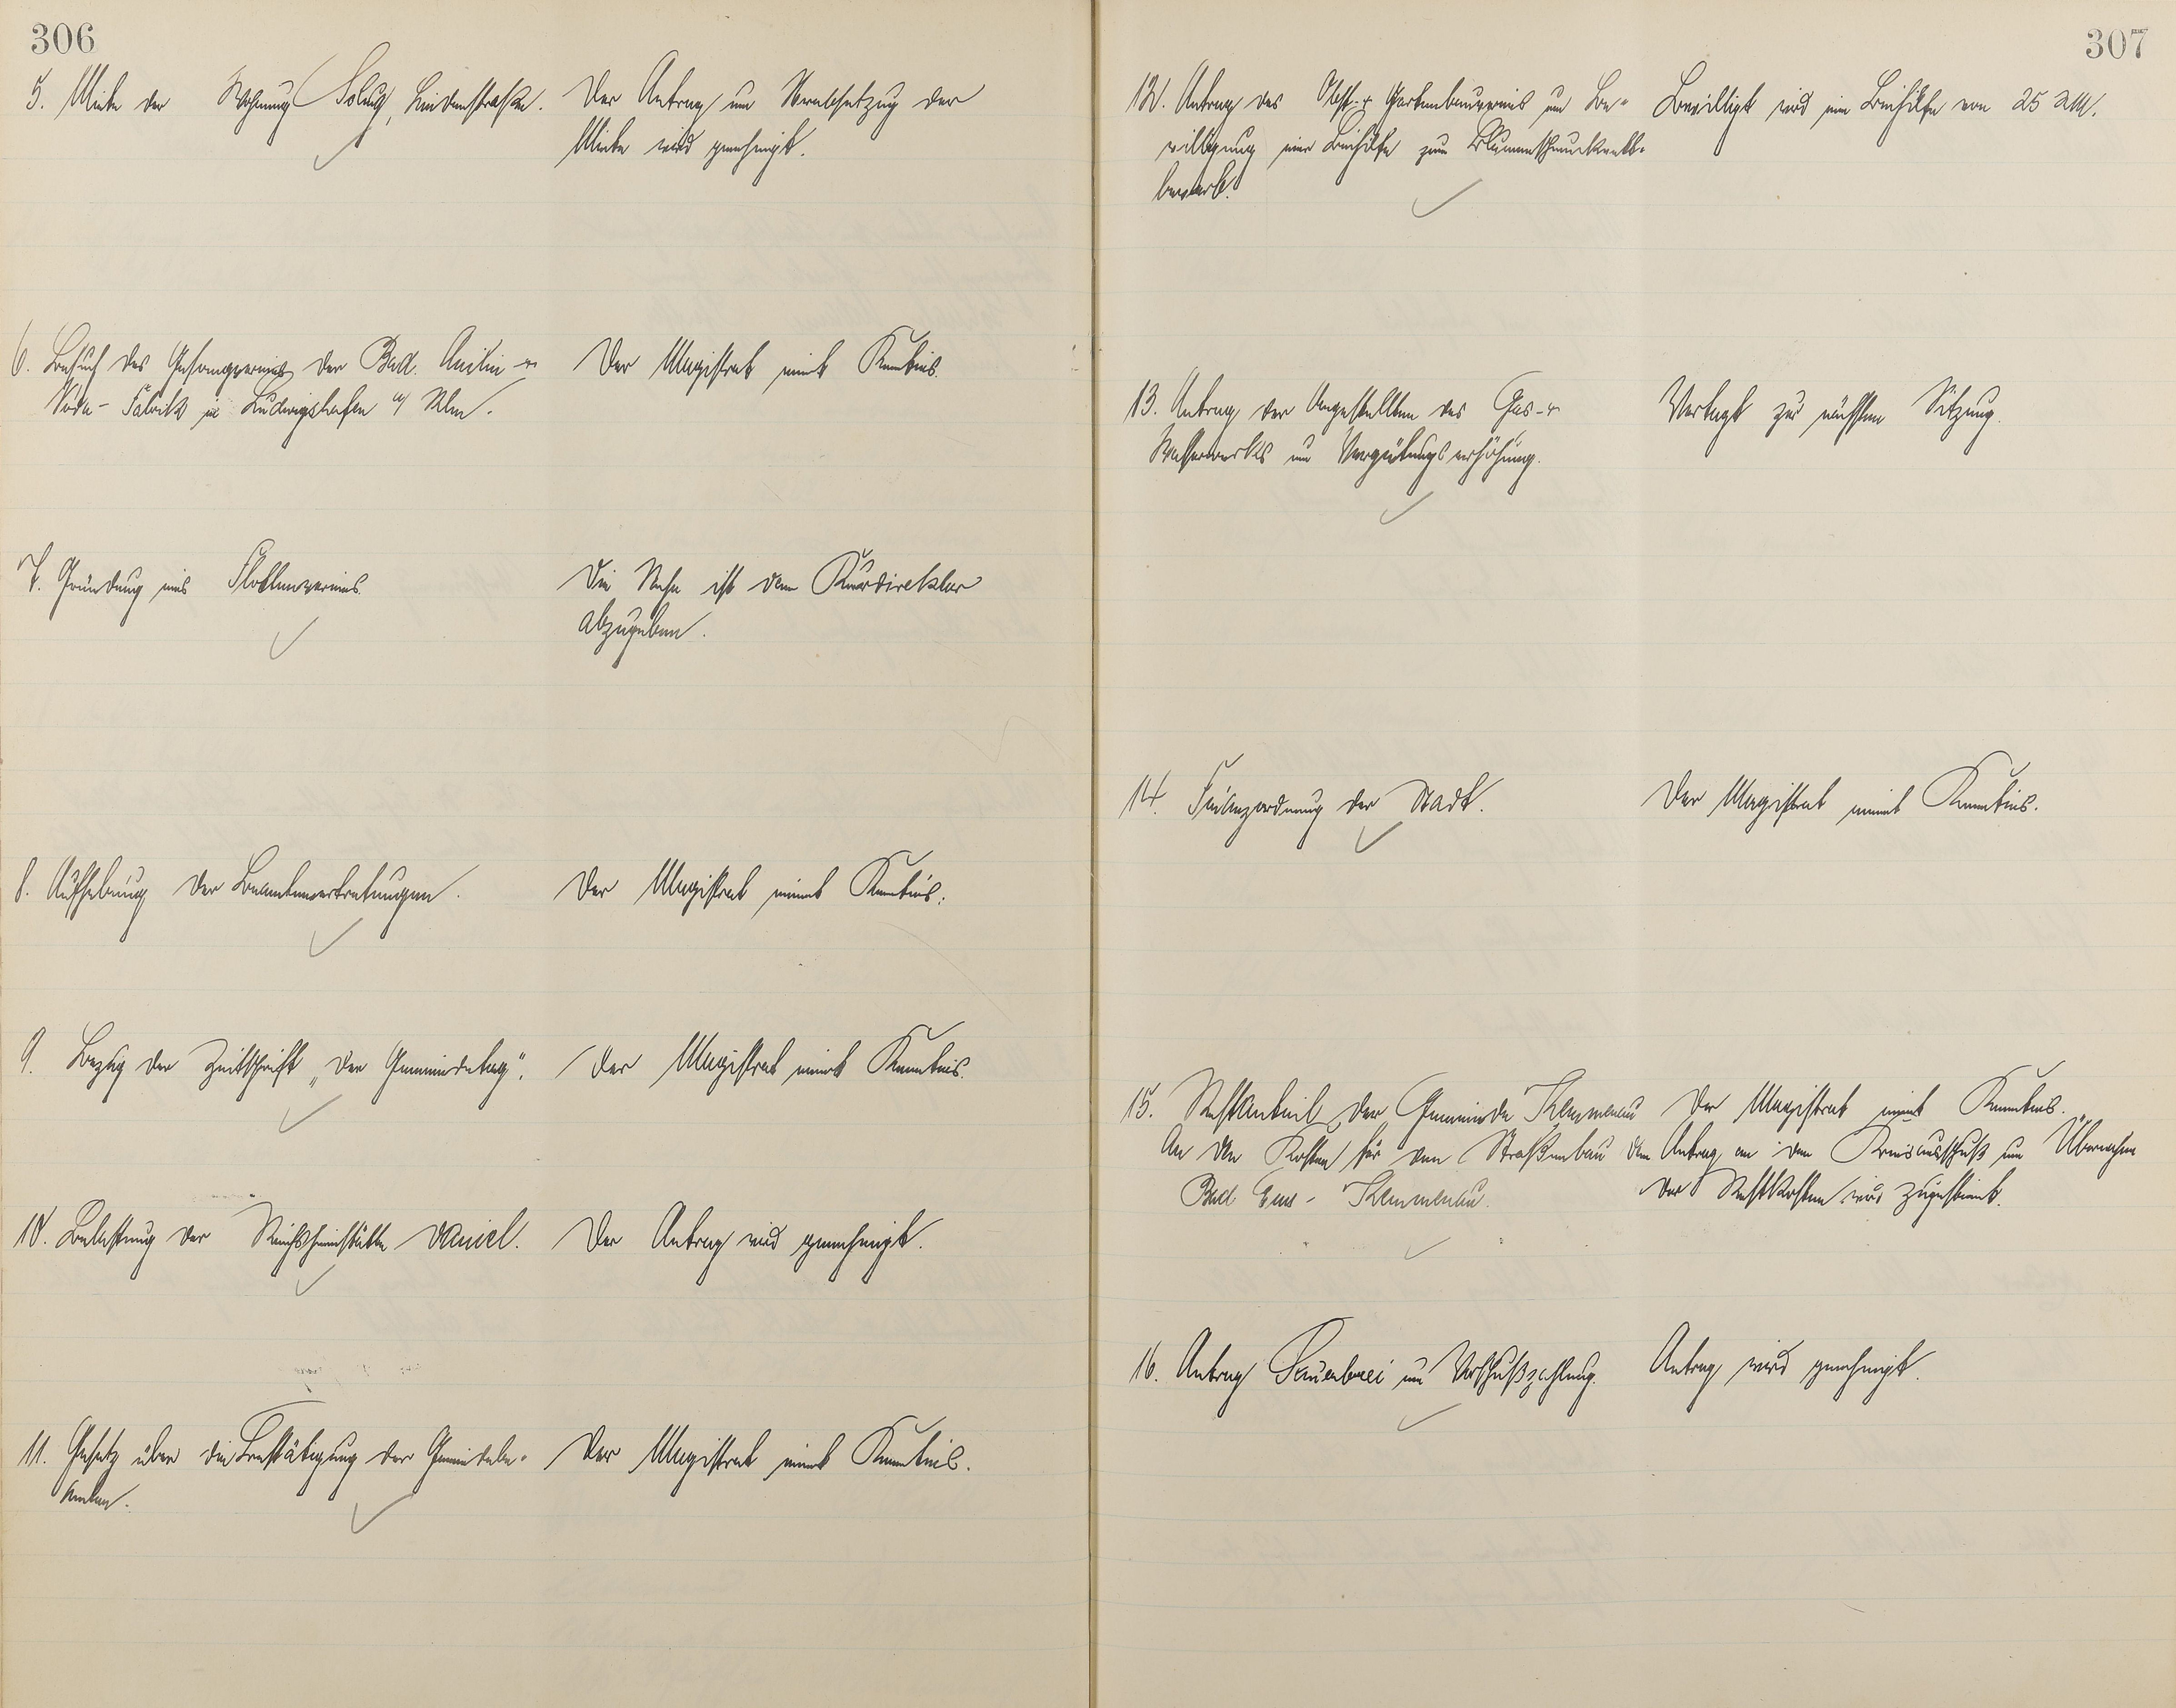 306
5. Miete der Wohnung, Lindenstraße.
Der Antrag um Herabsetzug der
Miete wird genehmigt.
6. Besuch des Gesangvereins der Bad. Anilin- u.
Soda-Fabrik in Ludwigshafen a/ Rhn.
Der Magistrat nimt Kenntnis.
7. Gründung eines Flottenvereins.
Die Sache ist dem Kurdirektor
abzugeben.
8. Aufhebung der Beamtenvertretungen.
Der Magistrat nimt Kenntnis.
9. Bezug der Zeitschrift „Der Gemeindetag“.
Der Magistrat nimt Kenntnis.
10. Belastung der Reichsheimstätte Daniel.
Der Antrag wird genehmigt.
11. Gesetz über die Bestätigung der Gemeindebe-
amten.
Der Magistrat nimt Kenntnis.
307
12. Antrag des Obst- & Gartenbauvereins um Be-
willigung einer Beihilfe zum Blumenschmuckwett-
bewerb.
Bewilligt wird eine Beihilfe von 25 RM.
13. Antrag der Angestellten des Gas- u.
Wasserwerks um Vergütungserhöhung.
Vertagt zur nächsten Sitzung.
14. Finanzordnung der Stadt.
Der Magistrat nimt Kenntnis.
15. Restanteil der Gemeinde Kemmenau
an den Kosten für den Straßenbau
Bad Ems - Kemmenau.
Der Magistrat nimt Kenntnis.
Dem Antrag an den Kreisausschuß um Übernahme
der Restkosten wird zugestimt.
16. Antrag um Vorschußzahlung.
Antrag wird genehmigt.